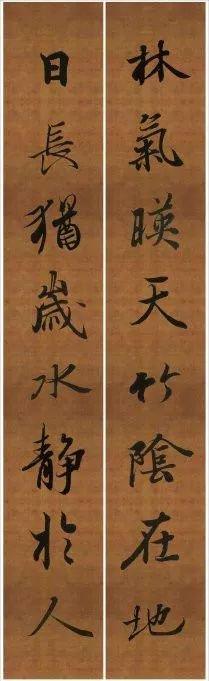 林氣暎天竹陰在地
日長猶歲水静於人